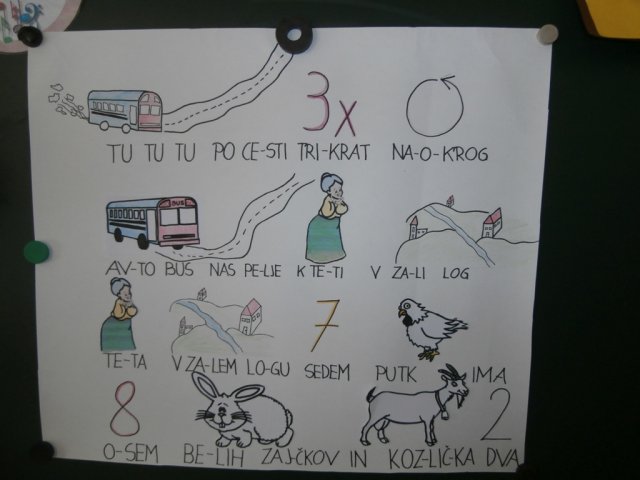 3x
TU TU TU PO CE-STI TRI-KRAT NA-O-KROG
BUS
AV-TO BUS NAS PE-LJE K TE-TI V ZA-LI LOG
7
TE-TA V ZA-LEM LO-GU SEDEM PUTK IMA
8 2
O-SEM BE-LIH ZAJ-ČKOV IN KOZ-LIČKA DVA